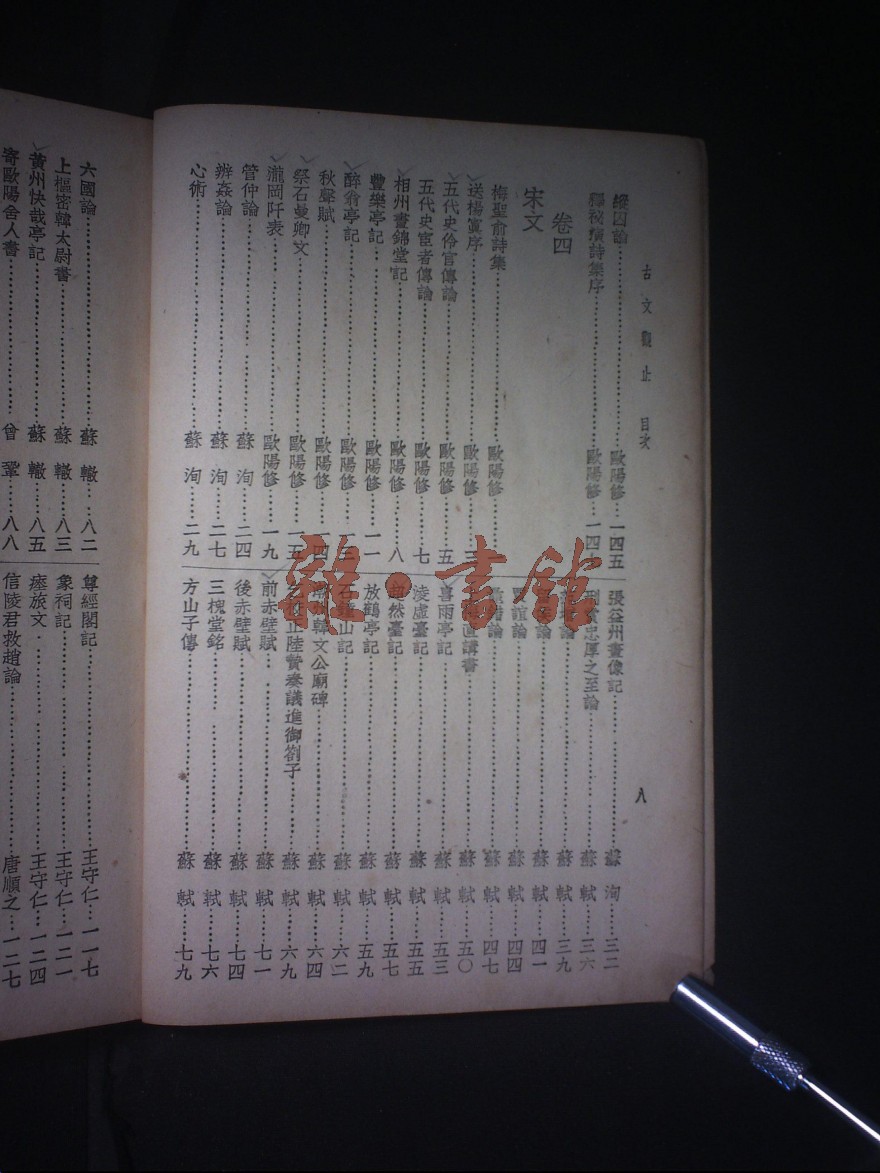 古文觀止 目次 八
縱囚論 歐陽修 一四五
釋秘演詩集序 歐陽修 一四
卷四
宋文
梅聖俞詩集 歐陽修
送楊寘序 歐陽修 三
五代史伶官傳論 歐陽修 五
五代史宦者傳論 歐陽修 七
相州晝錦堂記 歐陽修 八
豐樂亭記 歐陽修 一一
醉翁亭記 歐陽修 一三
秋聲賦 歐陽修 四
祭石曼卿文 歐陽修 一五
瀧岡阡表 歐陽修 一九
管仲論 蘇洵 二四
辨姦論 蘇洵 二七
心術 蘇洵 二九
張益州畫像記 蘇洵 三二
刑賞忠厚之至論 蘇軾 三六
論 蘇軾 三九
論 蘇軾 四一
賈誼論 蘇軾 四四
錯論 蘇軾 四七
直講書 蘇軾 五〇
喜雨亭記 蘇軾 五三
凌虛臺記 蘇軾 五五
超然臺記 蘇軾 五七
放鶴亭記 蘇軾 五九
石鐘山記 蘇軾 六二
潮州韓文公廟碑 蘇軾 六四
乞校正陸贄奏議進御劄子 蘇軾 六九
前赤壁賦 蘇軾 七一
後赤壁賦 蘇軾 七四
三槐堂銘 蘇軾 七六
方山子傳 蘇軾 七九
六國論 蘇轍 八二
上樞密韓太尉書 蘇轍 八三
黃州快哉亭記 蘇轍 八五
寄歐陽舍人書 曾鞏 八八
尊經閣記 王守仁 一一七
象祠記 王守仁 一二一
瘞旅文 王守仁 一二四
信陵君救趙論 唐順之 一二七
雜·書館